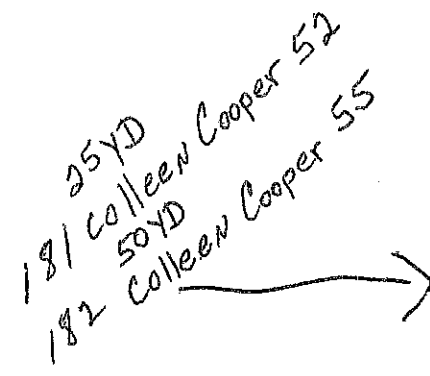 25YD
181 Colleen Cooper 52
50YD
182 Colleen Cooper 55